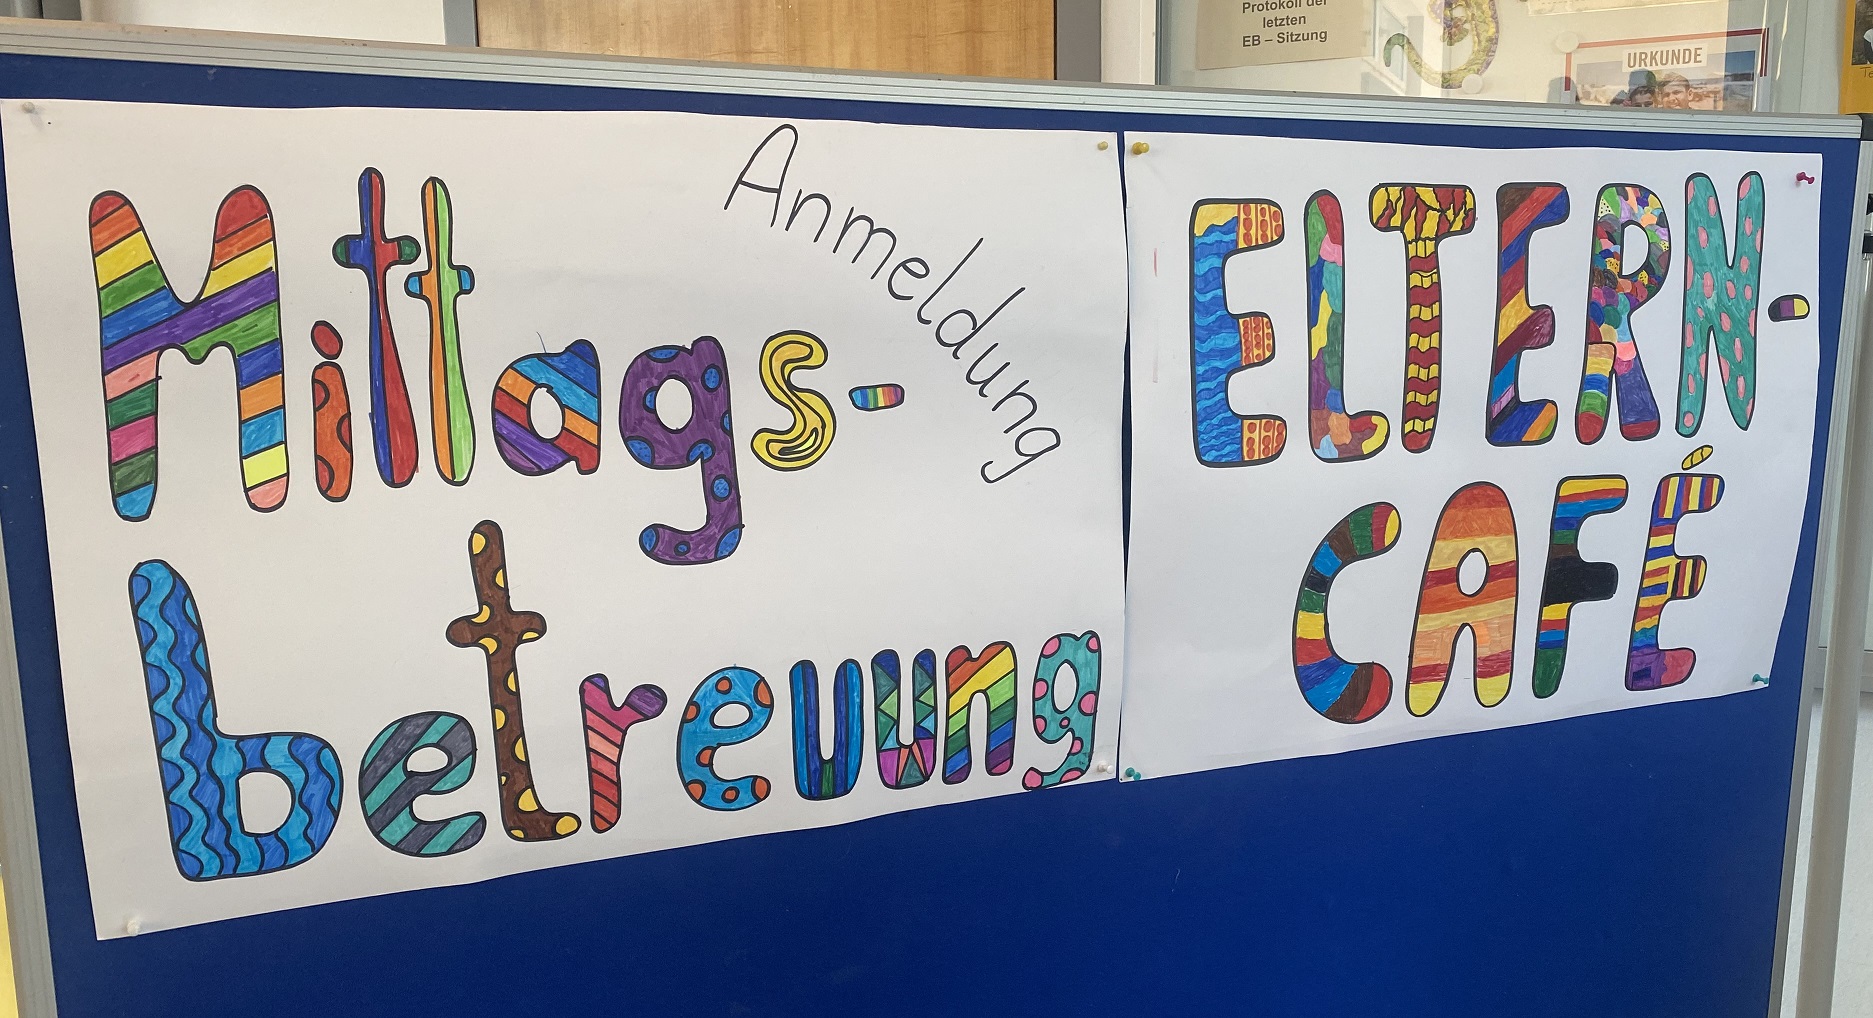 Protokoll der
letzten
EB – Sitzung
URKUNDE
Anmeldung
Mittags-
betreuung
ELTERN-
CAFÉ